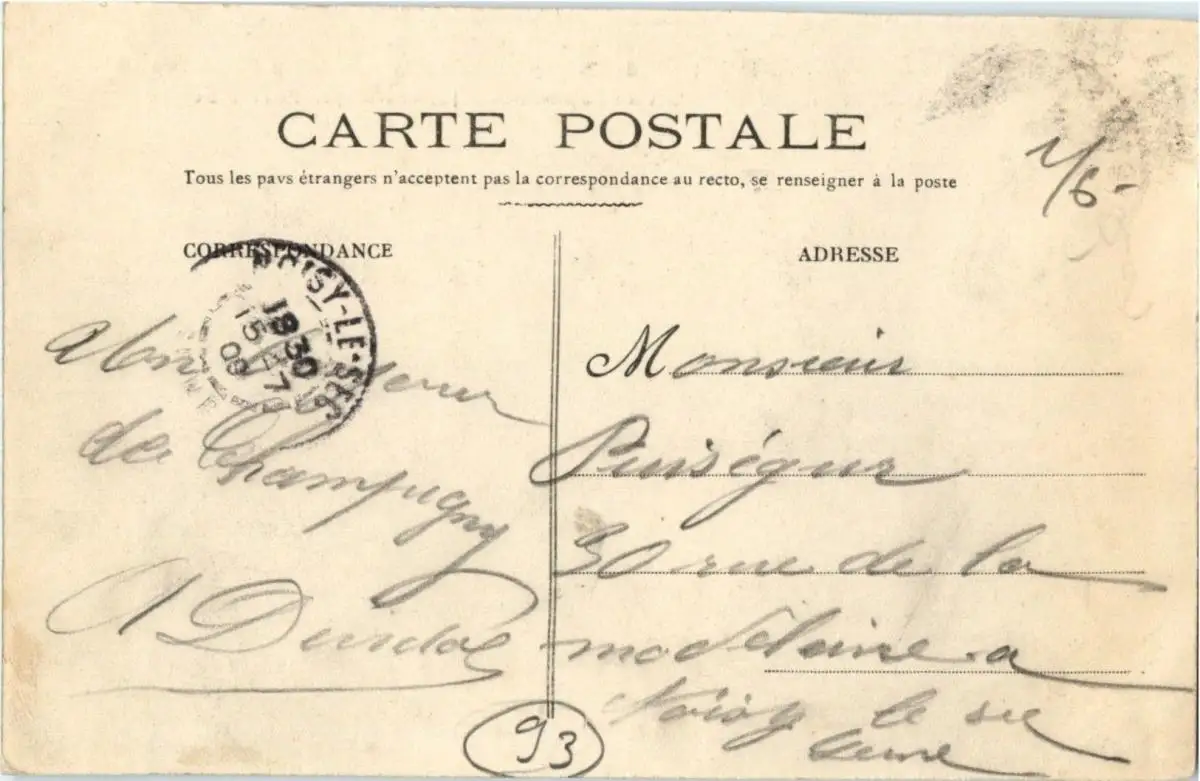 CARTE POSTALE
Tous les pays étrangers n'acceptent pas la correspondance au recto, se renseigner à la poste
1/6-
CORRESPONDANCE
ADRESSE
NOISY-LE-SEC
18 30
15
09
de Champigny
A
Monsieur
Puiségur
30 rue de la
modelaine a
Noisy le sec
Seine
93